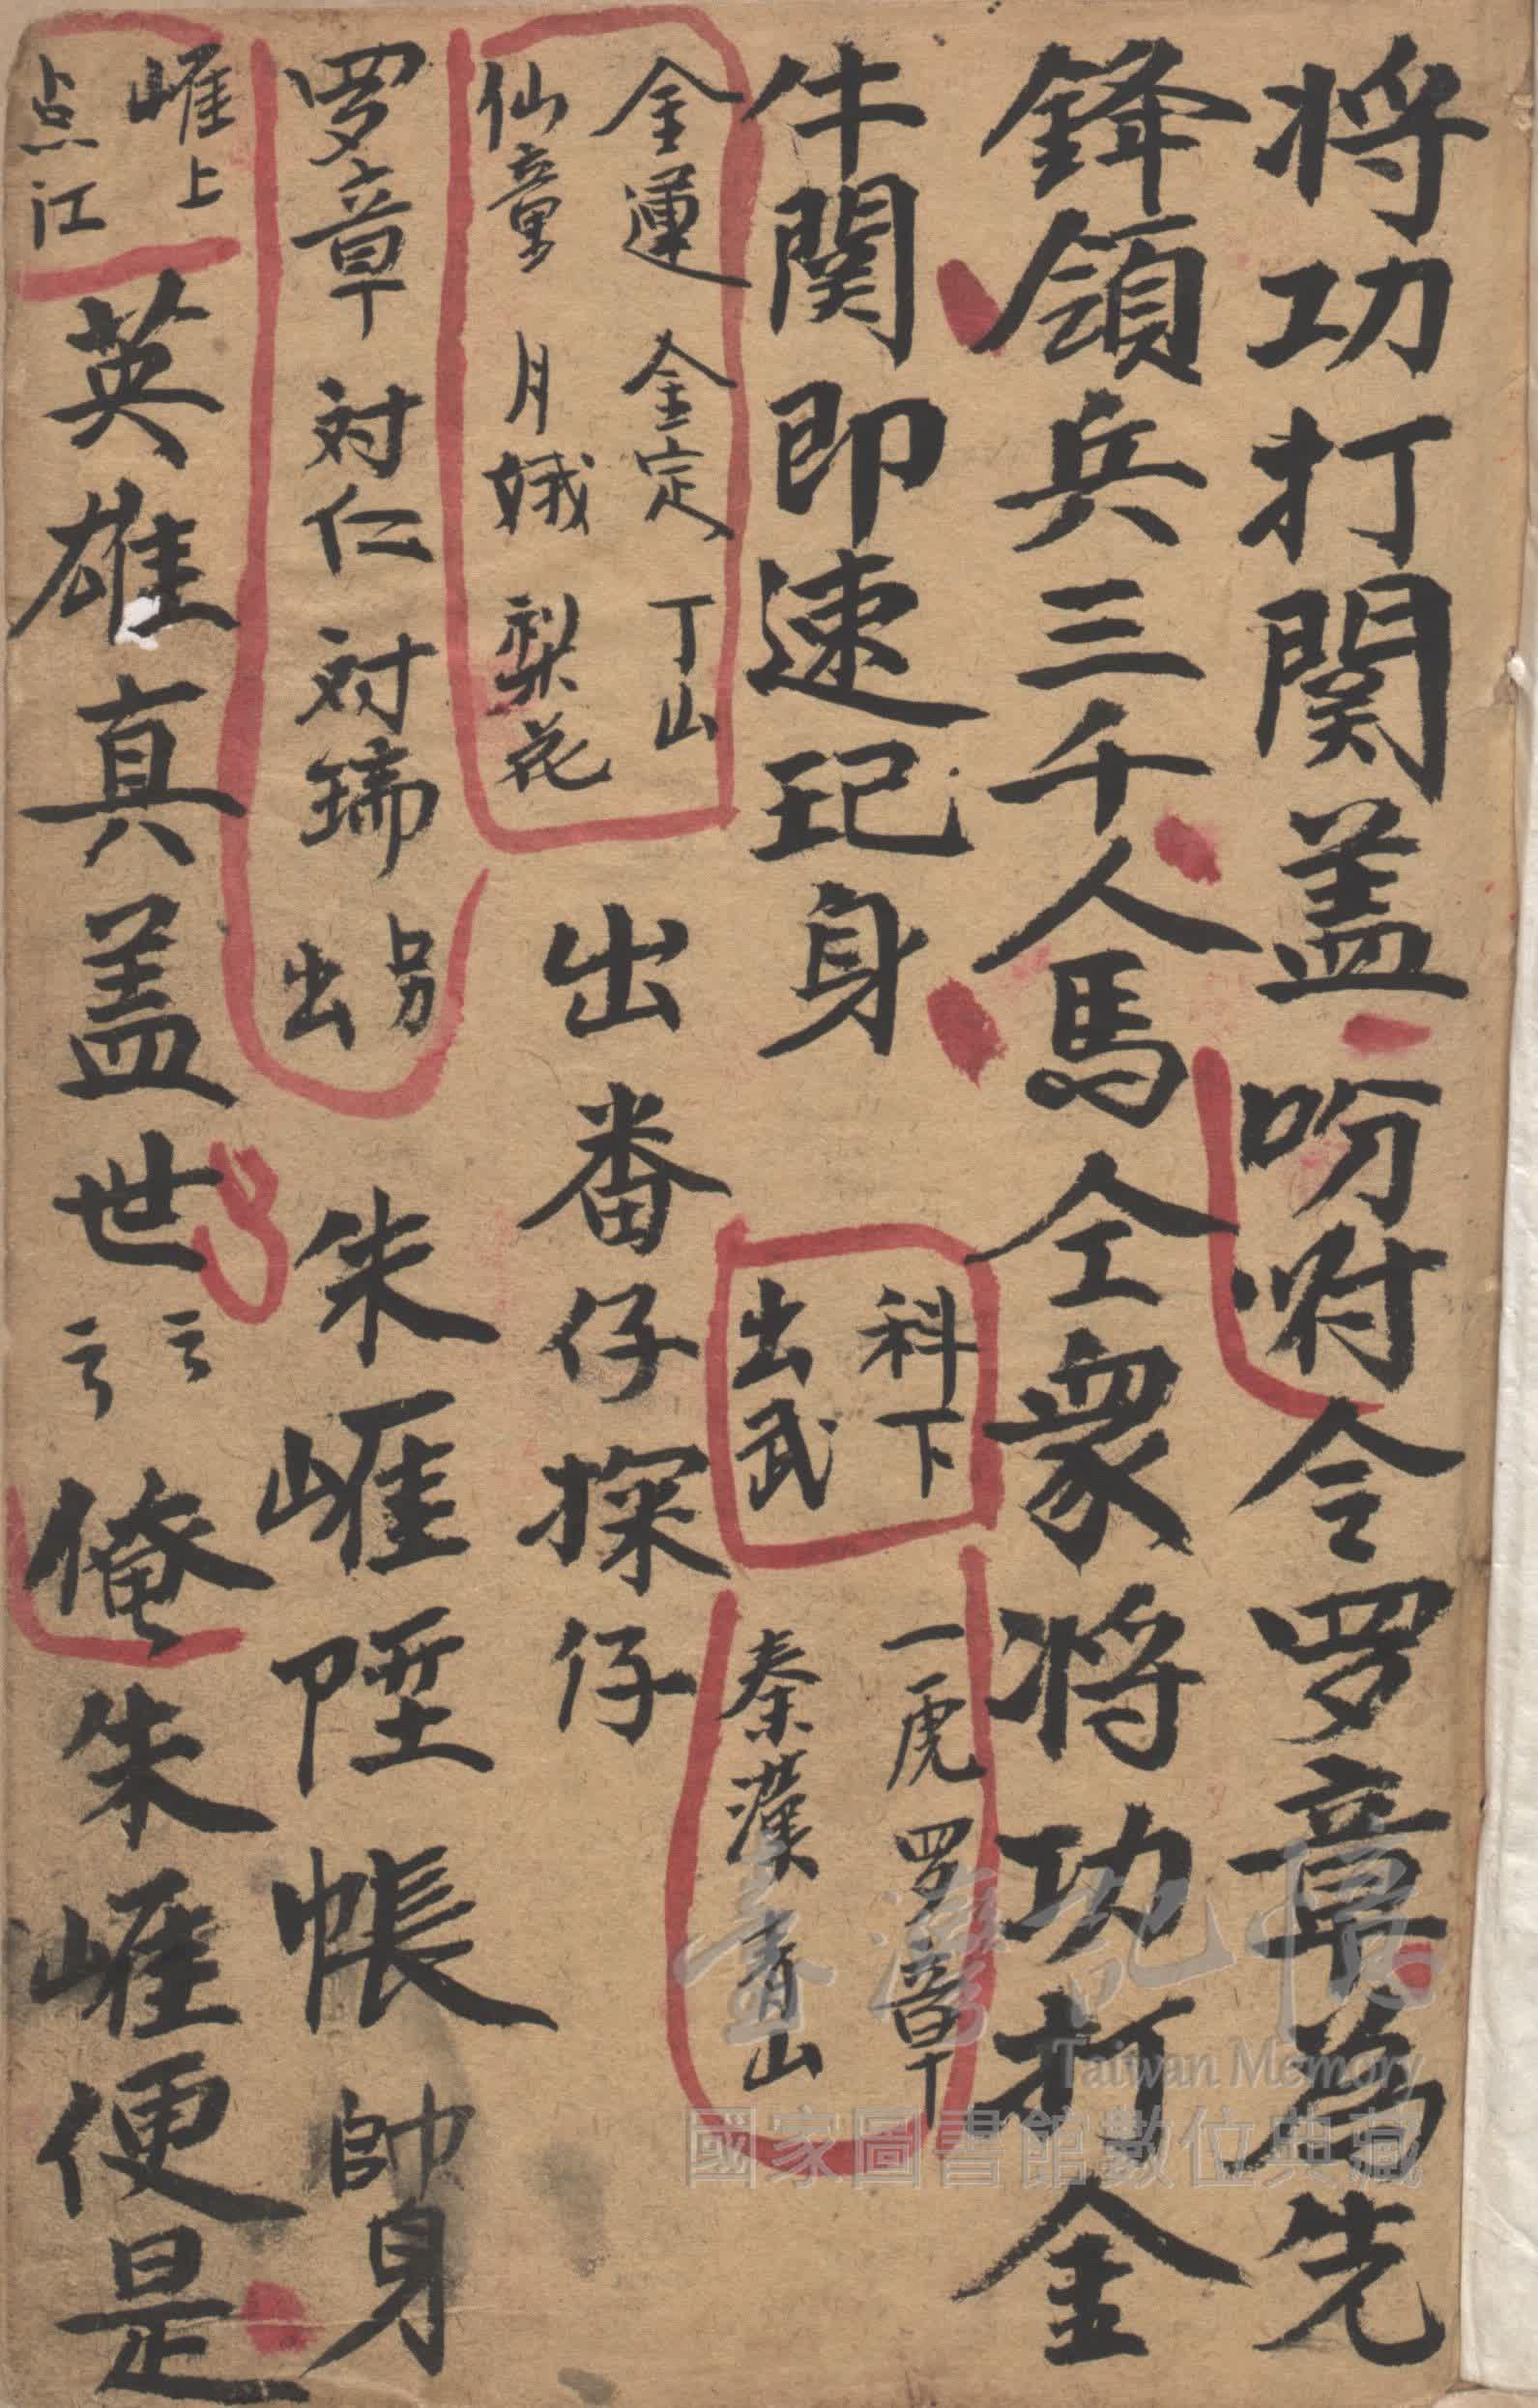 将功打関盖吩咐令罗章為先
鋒領兵三千人馬仝衆将功打金
牛関即速玘身
科下
出武
一虎 罗章
秦漢 青山
金蓮 金定 丁山
仙童 月娥 梨花
出番仔探仔
罗章 対仁 対瑞 另
出
朱崕陞帳帥身
崕上
点江
英雄真盖世
俺朱崕便是
臺灣記憶
Taiwan Memory
國家圖書館數位典藏